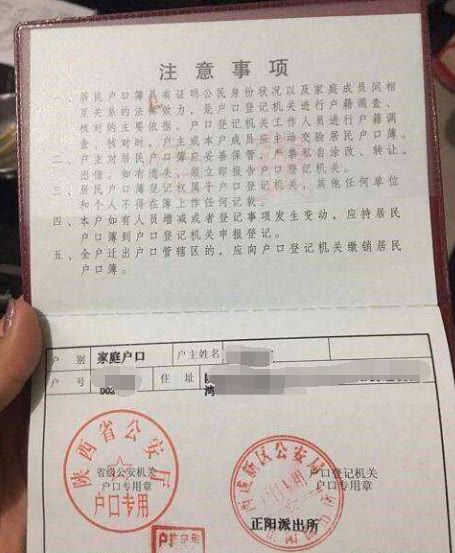 注意事项
一、居民户口簿具有证明公民身份状况以及家庭成员间相
互关系的法律效力,是户口登记机关进行户籍调查、
核对的主要依据。户口登记机关工作人员进行户籍调
查、核对时,户主或本户成员应主动交验居民户口簿。
二、户主对居民户口簿应妥善保管,严禁私自涂改、转让、
出借。如有遗失,须立即报告户口登记机关。
三、居民户口簿登记权属于户口登记机关,其他任何单位
和个人不得在簿上作任何记载。
四、本户如有人员增减或者登记事项发生变动,应持居民
户口簿到户口登记机关申报登记。
五、全户迁出户口管辖区的,应向户口登记机关缴销居民
户口簿。
户 别 家庭户口 户主姓名
户 号 002 住 址
湾
陕西省公安厅
省级公安机关
户口专用章
户口专用
户口登记机关
户口专用章
正阳派出所